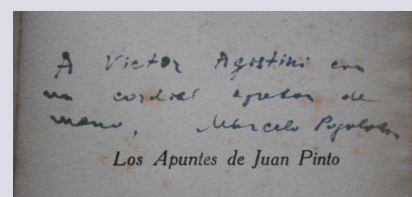 A Victor Agostini con
un cordial apreton de
mano, Marcelo Pogolotti
Los Apuntes de Juan Pinto